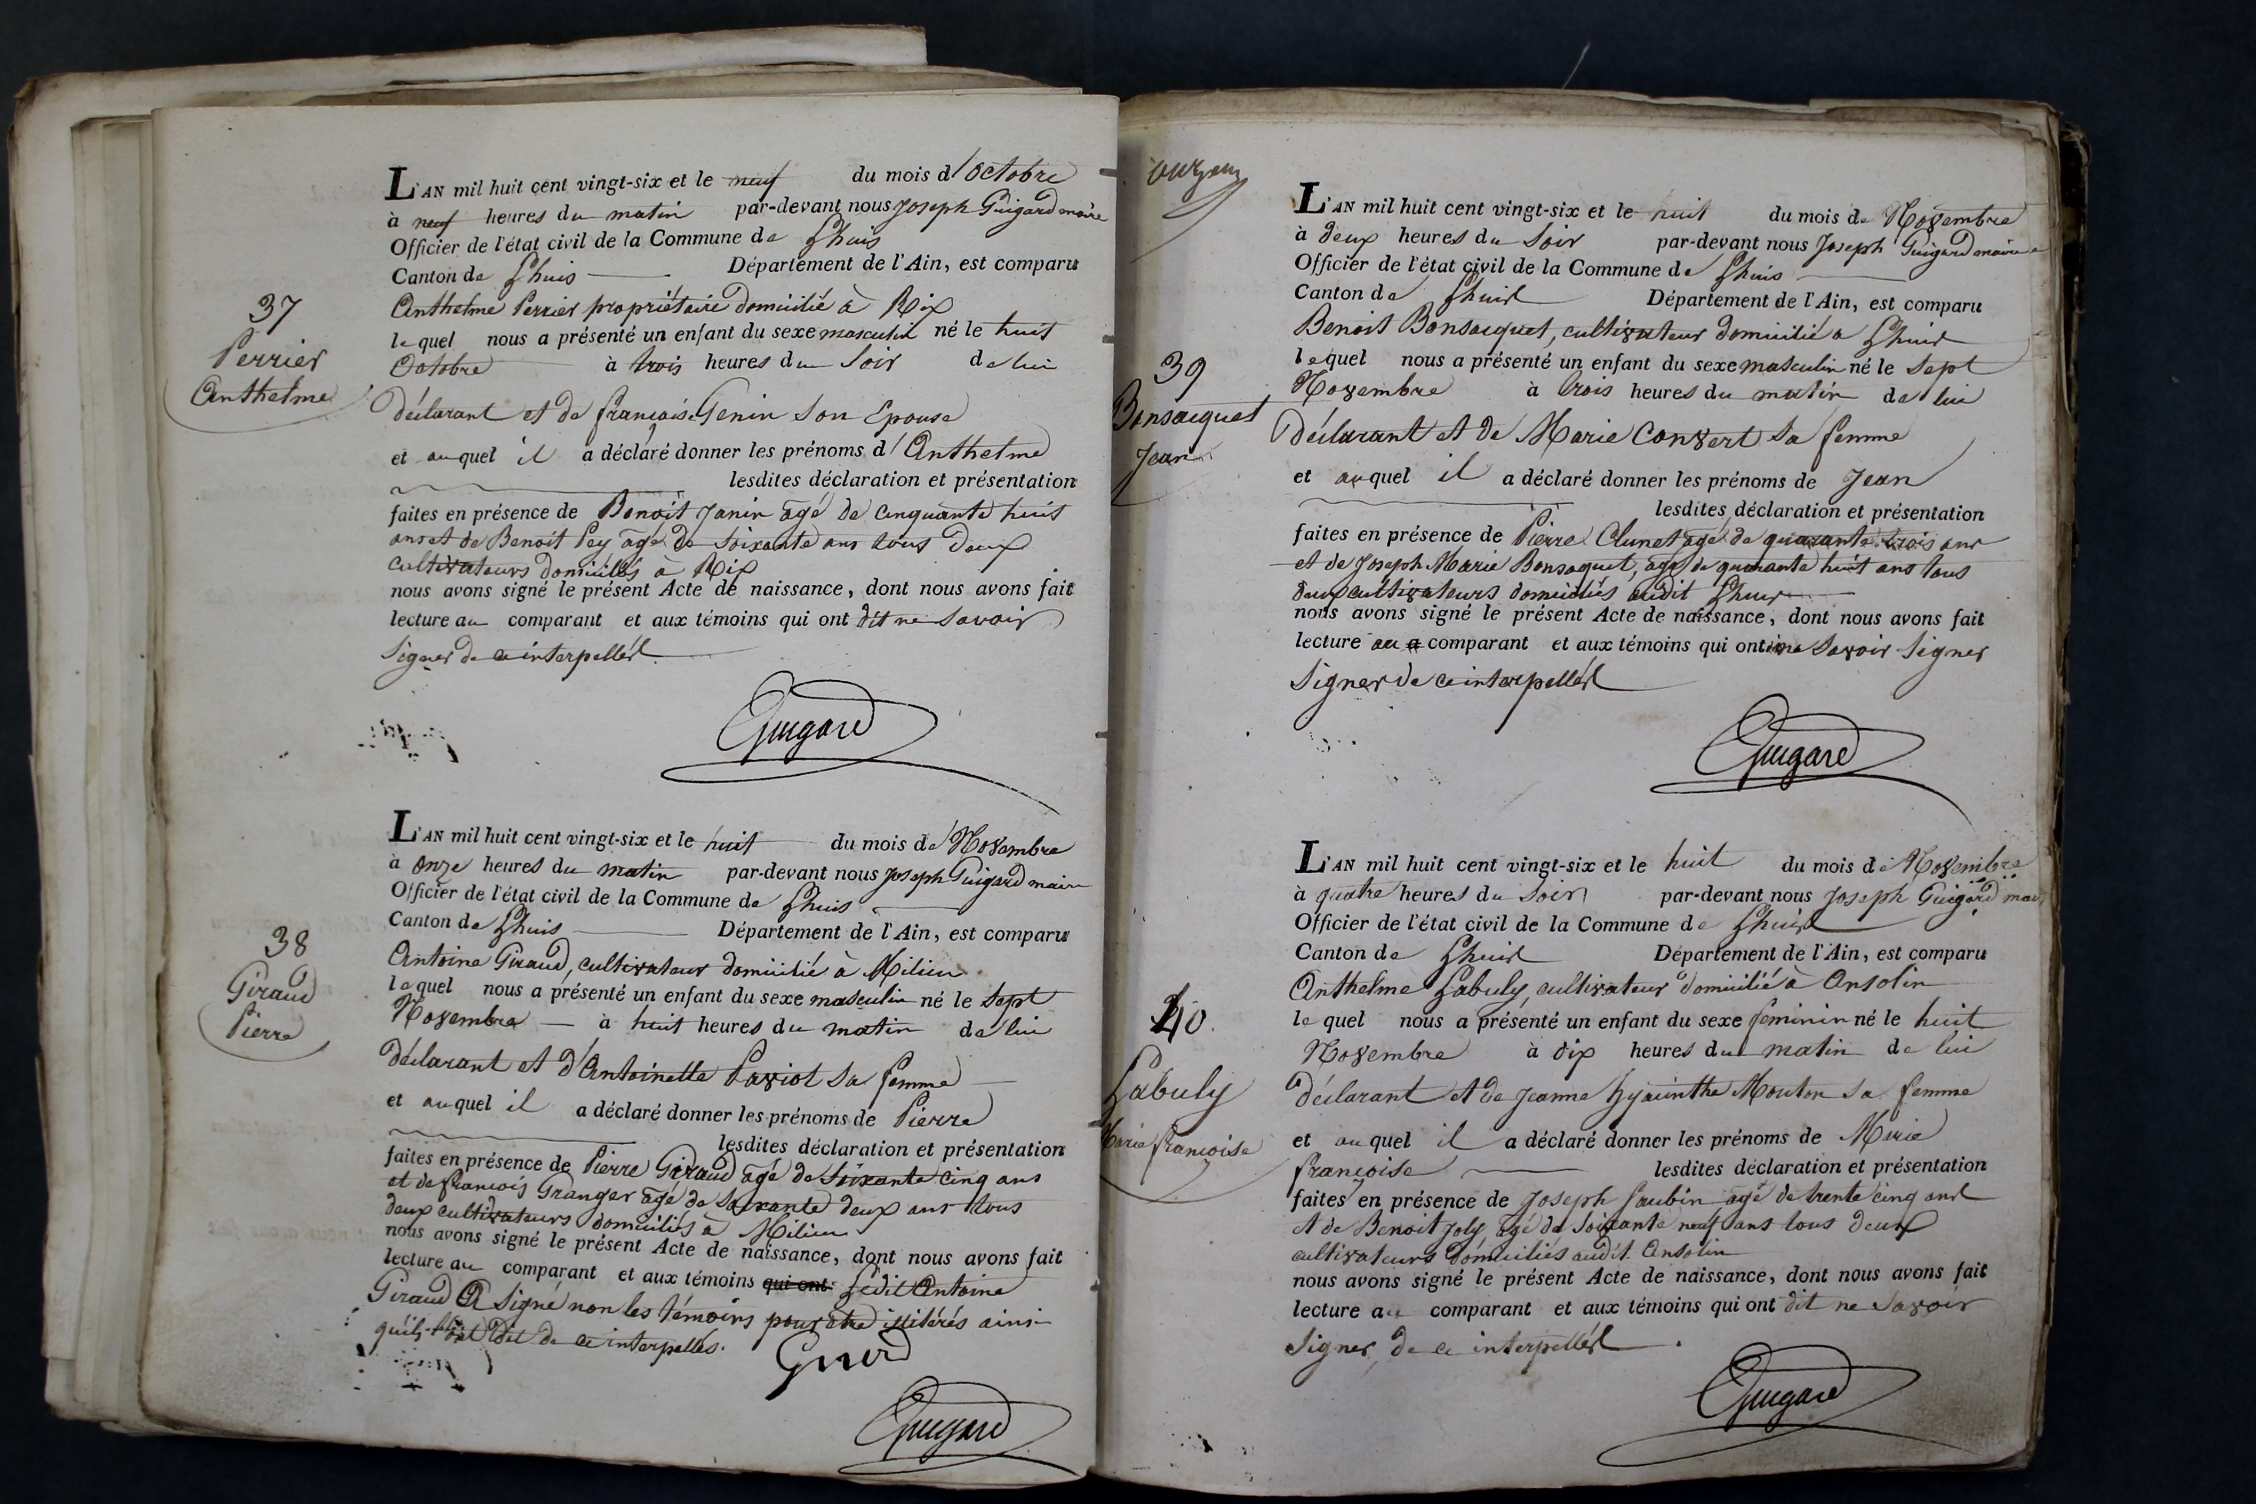 37
Perrier
Anthelme
L'AN mil huit cent vingt-six et le neuf du mois d'Octobre
à neuf heures du matin par-devant nous Joseph Guigard maire
Officier de l'état civil de la Commune de Lhuis
Canton de Lhuis Département de l'Ain, est comparu
Anthelme Perrier propriétaire domicilié à Rix
lequel nous a présenté un enfant du sexe masculin né le huit
Octobre à trois heures du Soir de lui
déclarant et de françoise Genin Son Epouse
et auquel il a déclaré donner les prénoms d'Anthelme
lesdites déclaration et présentation
faites en présence de Benoit Janin âgé de cinquante huit
ans et de Benoit Pey âgé de Soixante ans tous deux
cultivateurs domiciliés à Rix
nous avons signé le présent Acte de naissance, dont nous avons fait
lecture au comparant et aux témoins qui ont dit ne Savoir
Signer de ce interpellés
Guigard
38
Giraud
Pierre
L'AN mil huit cent vingt-six et le huit du mois de Novembre
à onze heures du matin par-devant nous Joseph Guigard maire
Officier de l'état civil de la Commune de Lhuis
Canton de Lhuis Département de l'Ain, est comparu
Antoine Giraud, cultivateur domicilié à Milieu
lequel nous a présenté un enfant du sexe masculin né le Sept
Novembre à huit heures du matin de lui
déclarant et d'Antoinette Paviot Sa femme
et auquel il a déclaré donner les prénoms de Pierre
lesdites déclaration et présentation
faites en présence de Pierre Giraud âgé de Soixante cinq ans
et de françois Granger âgé de Soixante deux ans tous
deux cultivateurs domiciliés à Milieu
nous avons signé le présent Acte de naissance, dont nous avons fait
lecture au comparant et aux témoins qui ont Ledit Antoine
Giraud A Signé non les témoins pour etre illitérés ainsi
qu'ils ont dit de ce interpellés.
Guigard
39
Bonsacquet
Jean
L'AN mil huit cent vingt-six et le huit du mois de Novembre
à deux heures du Soir par-devant nous Joseph Guigard maire
Officier de l'état civil de la Commune de Lhuis
Canton de Lhuis Département de l'Ain, est comparu
Benoit Bonsacquet, cultivateur domicilié à Lhuis
lequel nous a présenté un enfant du sexe masculin né le Sept
Novembre à trois heures du matin de lui
déclarant et de Marie Convert Sa femme
et auquel il a déclaré donner les prénoms de Jean
lesdites déclaration et présentation
faites en présence de Pierre Clunet âgé de quarante trois ans
et de Joseph Marie Bonsaquet, âgé de quarante huit ans tous
deux cultivateurs domiciliés audit Lhuis
nous avons signé le présent Acte de naissance, dont nous avons fait
lecture au comparant et aux témoins qui ont ne Savoir Signer
Signer de ce interpellés
Guigard
40
Labuly
Marie françoise
L'AN mil huit cent vingt-six et le huit du mois de Novembre
à quatre heures du Soir par-devant nous Joseph Guigard maire
Officier de l'état civil de la Commune de Lhuis
Canton de Lhuis Département de l'Ain, est comparu
Anthelme Labuly, cultivateur domicilié à Ansolin
lequel nous a présenté un enfant du sexe féminin né le huit
Novembre à dix heures du matin de lui
déclarant et de Jeanne hyacinthe Mouton Sa femme
et auquel il a déclaré donner les prénoms de Marie
françoise lesdites déclaration et présentation
faites en présence de Joseph Saubin âgé de trente cinq ans
et de Benoit Joly, âgé de Soixante neuf ans tous deux
cultivateurs domiciliés audit Ansolin
nous avons signé le présent Acte de naissance, dont nous avons fait
lecture au comparant et aux témoins qui ont dit ne Savoir
Signer, de ce interpellés
Guigard